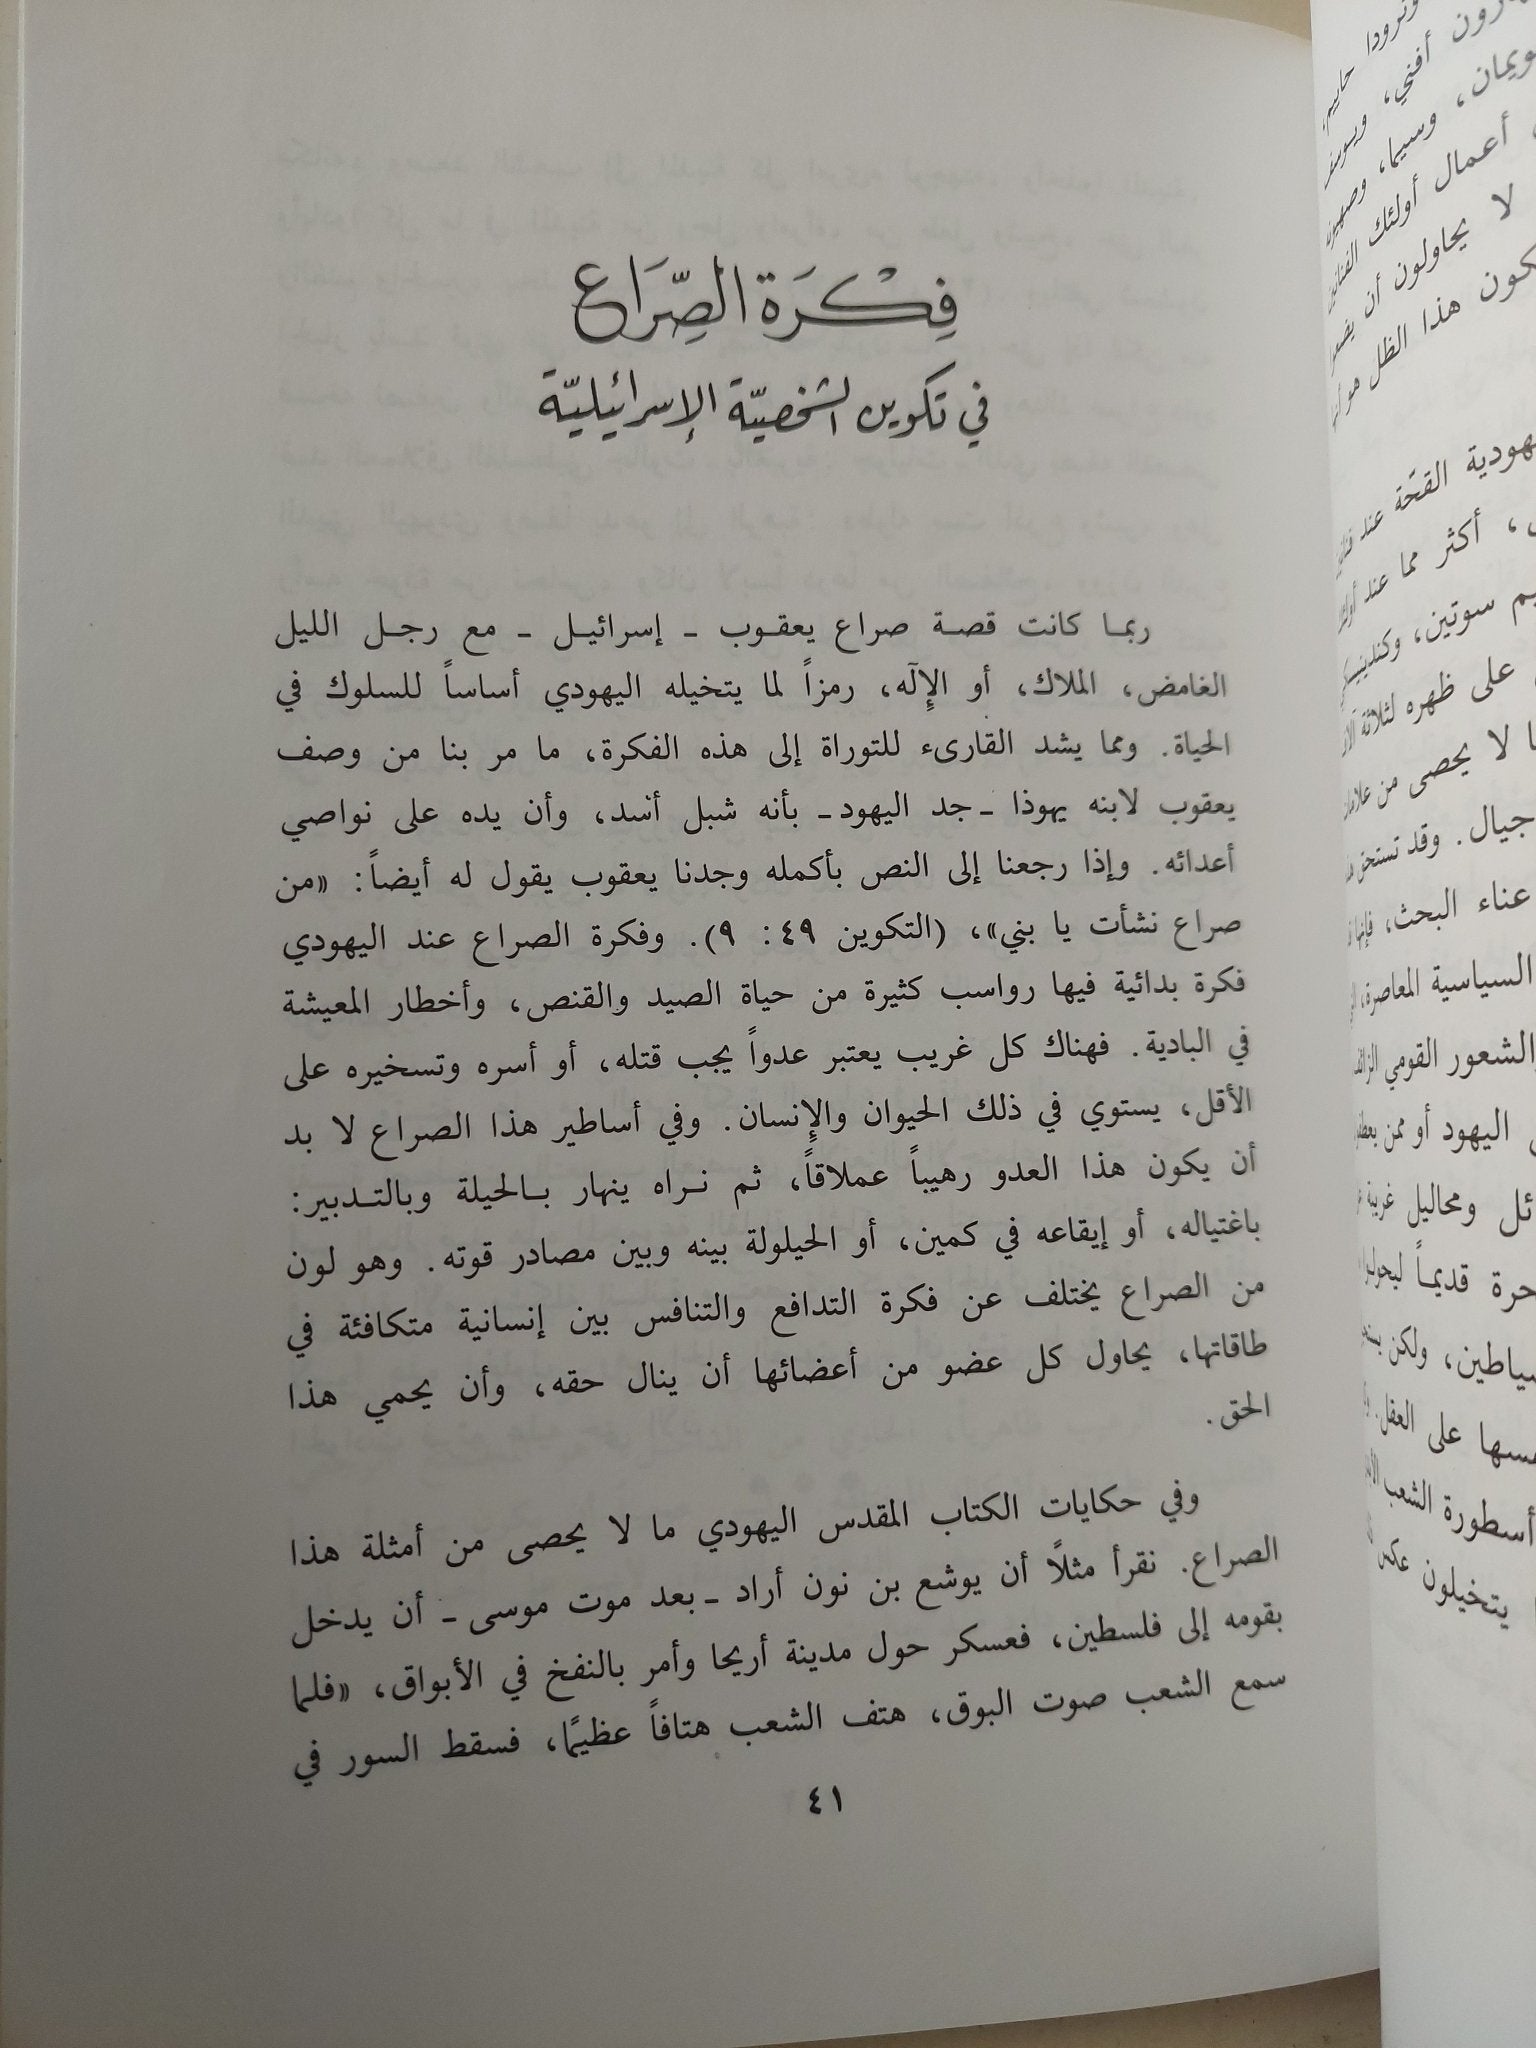 فِكْرَة الصِّرَاع
في تكوين الشخصيّة الإسرائيليّة
ربما كانت قصة صراع يعقوب ـ إسرائيل ـ مع رجل الليل
الغامض، الملاك، أو الإِلٓه، رمزاً لما يتخيله اليهودي أساساً للسلوك في
الحياة. ومما يشد القارىء للتوراة إلى هذه الفكرة، ما مر بنا من وصف
يعقوب لابنه يهوذا ـ جد اليهود ـ بأنه شبل أسد، وأن يده على نواصي
أعدائه. وإذا رجعنا إلى النص بأكمله وجدنا يعقوب يقول له أيضاً: «من
صراع نشأت يا بني»، (التكوين ٤٩: ٩). وفكرة الصراع عند اليهودي
فكرة بدائية فيها رواسب كثيرة من حياة الصيد والقنص، وأخطار المعيشة
في البادية. فهناك كل غريب يعتبر عدواً يجب قتله، أو أسره وتسخيره على
الأقل، يستوي في ذلك الحيوان والإِنسان. وفي أساطير هذا الصراع لا بد
أن يكون هذا العدو رهيباً عملاقاً، ثم نراه ينهار بالحيلة وبالتدبير:
باغتياله، أو إيقاعه في كمين، أو الحيلولة بينه وبين مصادر قوته. وهو لون
من الصراع يختلف عن فكرة التدافع والتنافس بين إنسانية متكافئة في
طاقاتها، يحاول كل عضو من أعضائها أن ينال حقه، وأن يحمي هذا
الحق.
وفي حكايات الكتاب المقدس اليهودي ما لا يحصى من أمثلة هذا
الصراع. نقرأ مثلاً أن يوشع بن نون أراد ـ بعد موت موسى ـ أن يدخل
بقومه إلى فلسطين، فعسكر حول مدينة أريحا وأمر بالنفخ في الأبواق، «فلما
سمع الشعب صوت البوق، هتف الشعب هتافاً عظيمًا، فسقط السور في
٤١
حاييم،
أفني،
ويمان، وسيما،
أعمال أولئك
لا يحاولون أن
كون هذا الظل هو
القحّة عند
، أكثر مما عند
سوتين،
على ظهره لثلاثة
لا يحصى من
جيال. وقد تستحق
عناء البحث، فإنها
السياسية المعاصرة،
الشعور القومي
اليهود أو ممن
ئل ومحاليل غريبة
حرة قديماً
ولكن
على العقل.
أسطورة الشعب
يتخيلون